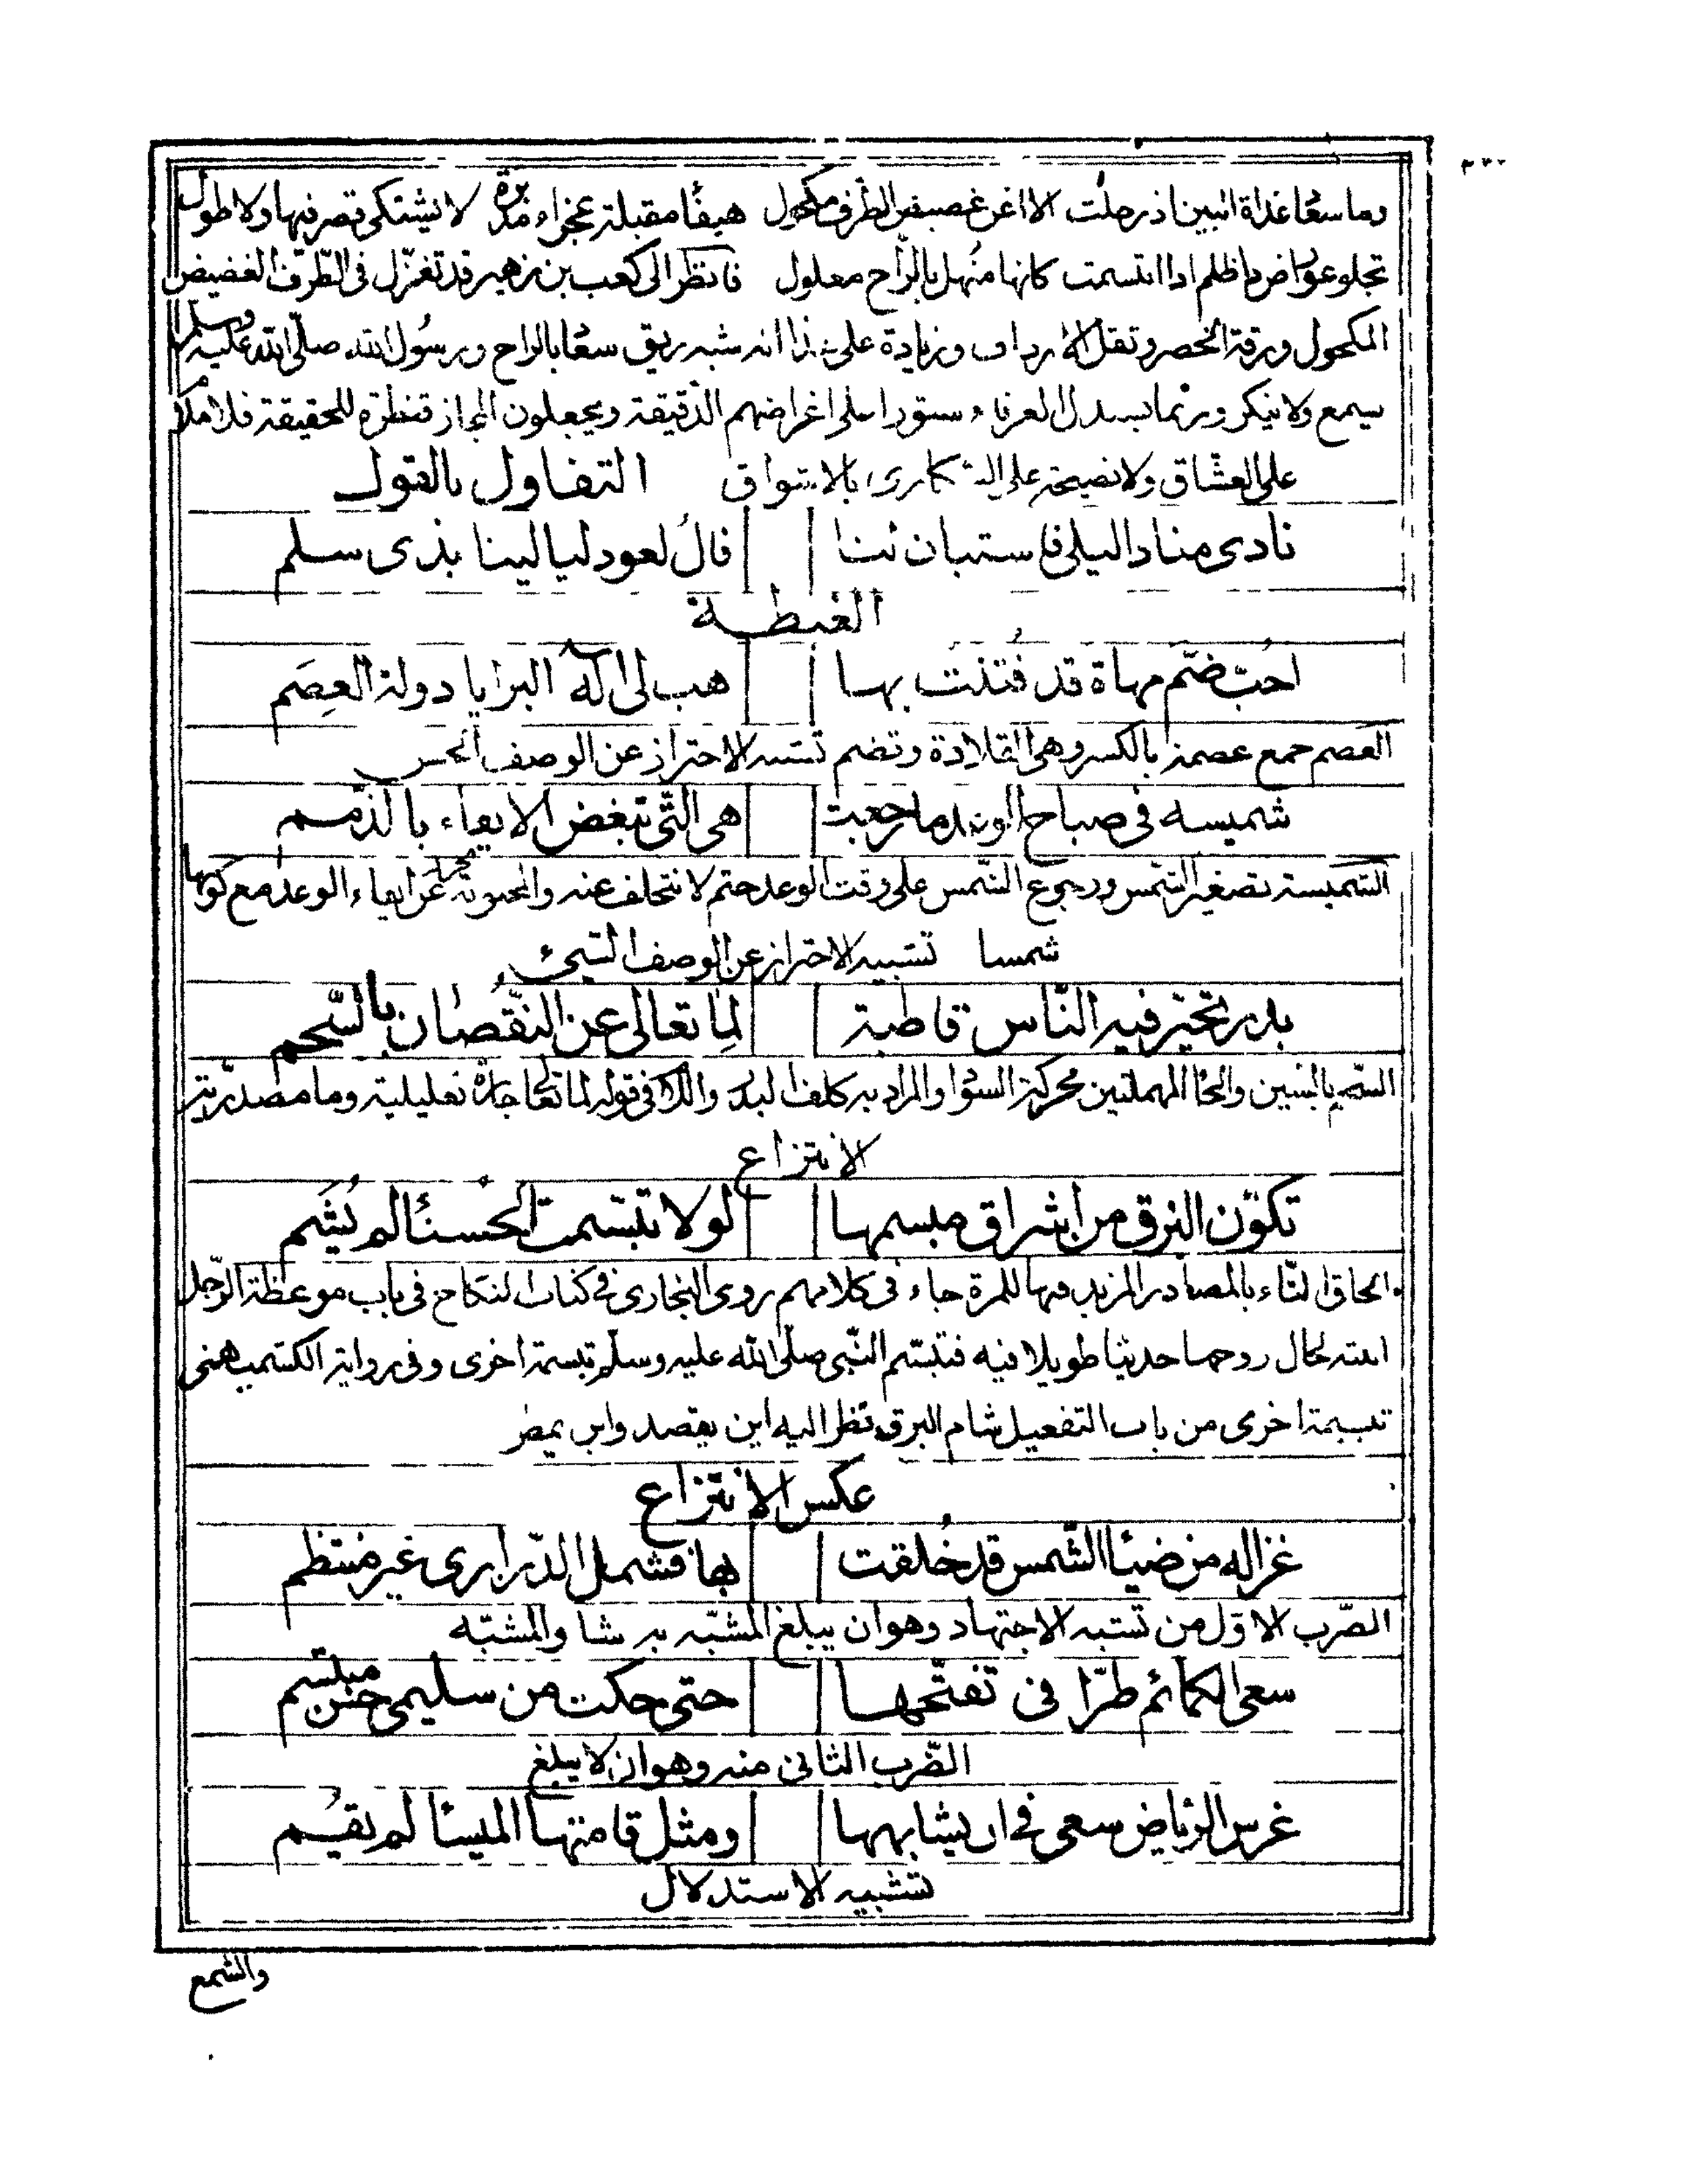 وما سعا غداة البين اذ رحلت الا اغن غضيض الطرف مكحول هيفا مقبلة عجزاء مدبرة لا يشتكى قصر فيها ولا طول
تجلو عوارض ذا ظلم اذا ابتسمت كانها منهل بالراح معلول فانظر الى كعب بن زهير قد تغزل فى الطرف الغضيض
المكحول ورقة الخصر وثقل الارداف وزيادة على هذا انه شبه ريق سعا بالراح ورسول الله صلى الله عليه وسلم
يسمع ولا ينكر وربما يسدل العرفاء ستورا على اغراضهم الدقيقة ويجعلون المجاز قنطرة للحقيقة فلا ملام
على العشاق ولا نصيحة على السكارى بالاشواق التفاول بالقول
نادى مناد اليلى فاستبان لنا فال لعود ليالينا بذى سلم
الغبطة
احب ضم مهاة قد فتنت بها هب لى اله البرايا دولة العصم
العصم جمع عصمة بالكسر وهى القلادة وتضم تشبيه الاحتراز عن الوصف الحسن
شميسه فى صباح الوعد ما رجعت هى التى تبغض الايفاء بالذمم
الشميسة تصغير الشمس ورجوع الشمس على وقت الوعد حتم لا تتخلف عنه والمحبوبة عن ايفاء الوعد مع كونها
شمسا تشبيه الاحتراز عن الوصف السيئ
بدر تحير فيه الناس قاطبة لما تعالى عن النقصان بالسحم
السحم بالسين والحا المهملتين محركة السوا والمراد به كلف البد واللا فى قوله لما تعا جارة تعليلية وما مصدرية
الانتزاع
تكون البرق من اشراق مبسمها لولا تبسمت الحسنا لم يشم
الحاق التاء بالمصادر المزيد فيها للمرة جاء فى كلامهم روى البخارى فى كتاب النكاح فى باب موعظة الرجل
ابنته لحال زوجها حديثا طويلا فيه فتبسم النبى صلى الله عليه وسلم تبسمة اخرى وفى رواية الكشميهنى
تبسيمة اخرى من باب التفعيل شام البرق نظر اليه اين يقصد واين يمطر
عكس الانتزاع
غزاله من ضيا الشمس قد خلقت بها فشمل الدرارى غير منتظم
الضرب الاول من تشبيه الاجتهاد وهو ان يبلغ المشبه به شا والمشبه
سعى الكمائم طرا فى تفتحها حتى حكت من سليمى حسن مبتسم
الضرب الثانى منه وهو ان لا يبلغ
غرس الرياض سعى فى ان يشابهها ومثل قامتها الميسا لم يقم
تشبيه الاستدلال
والشمع